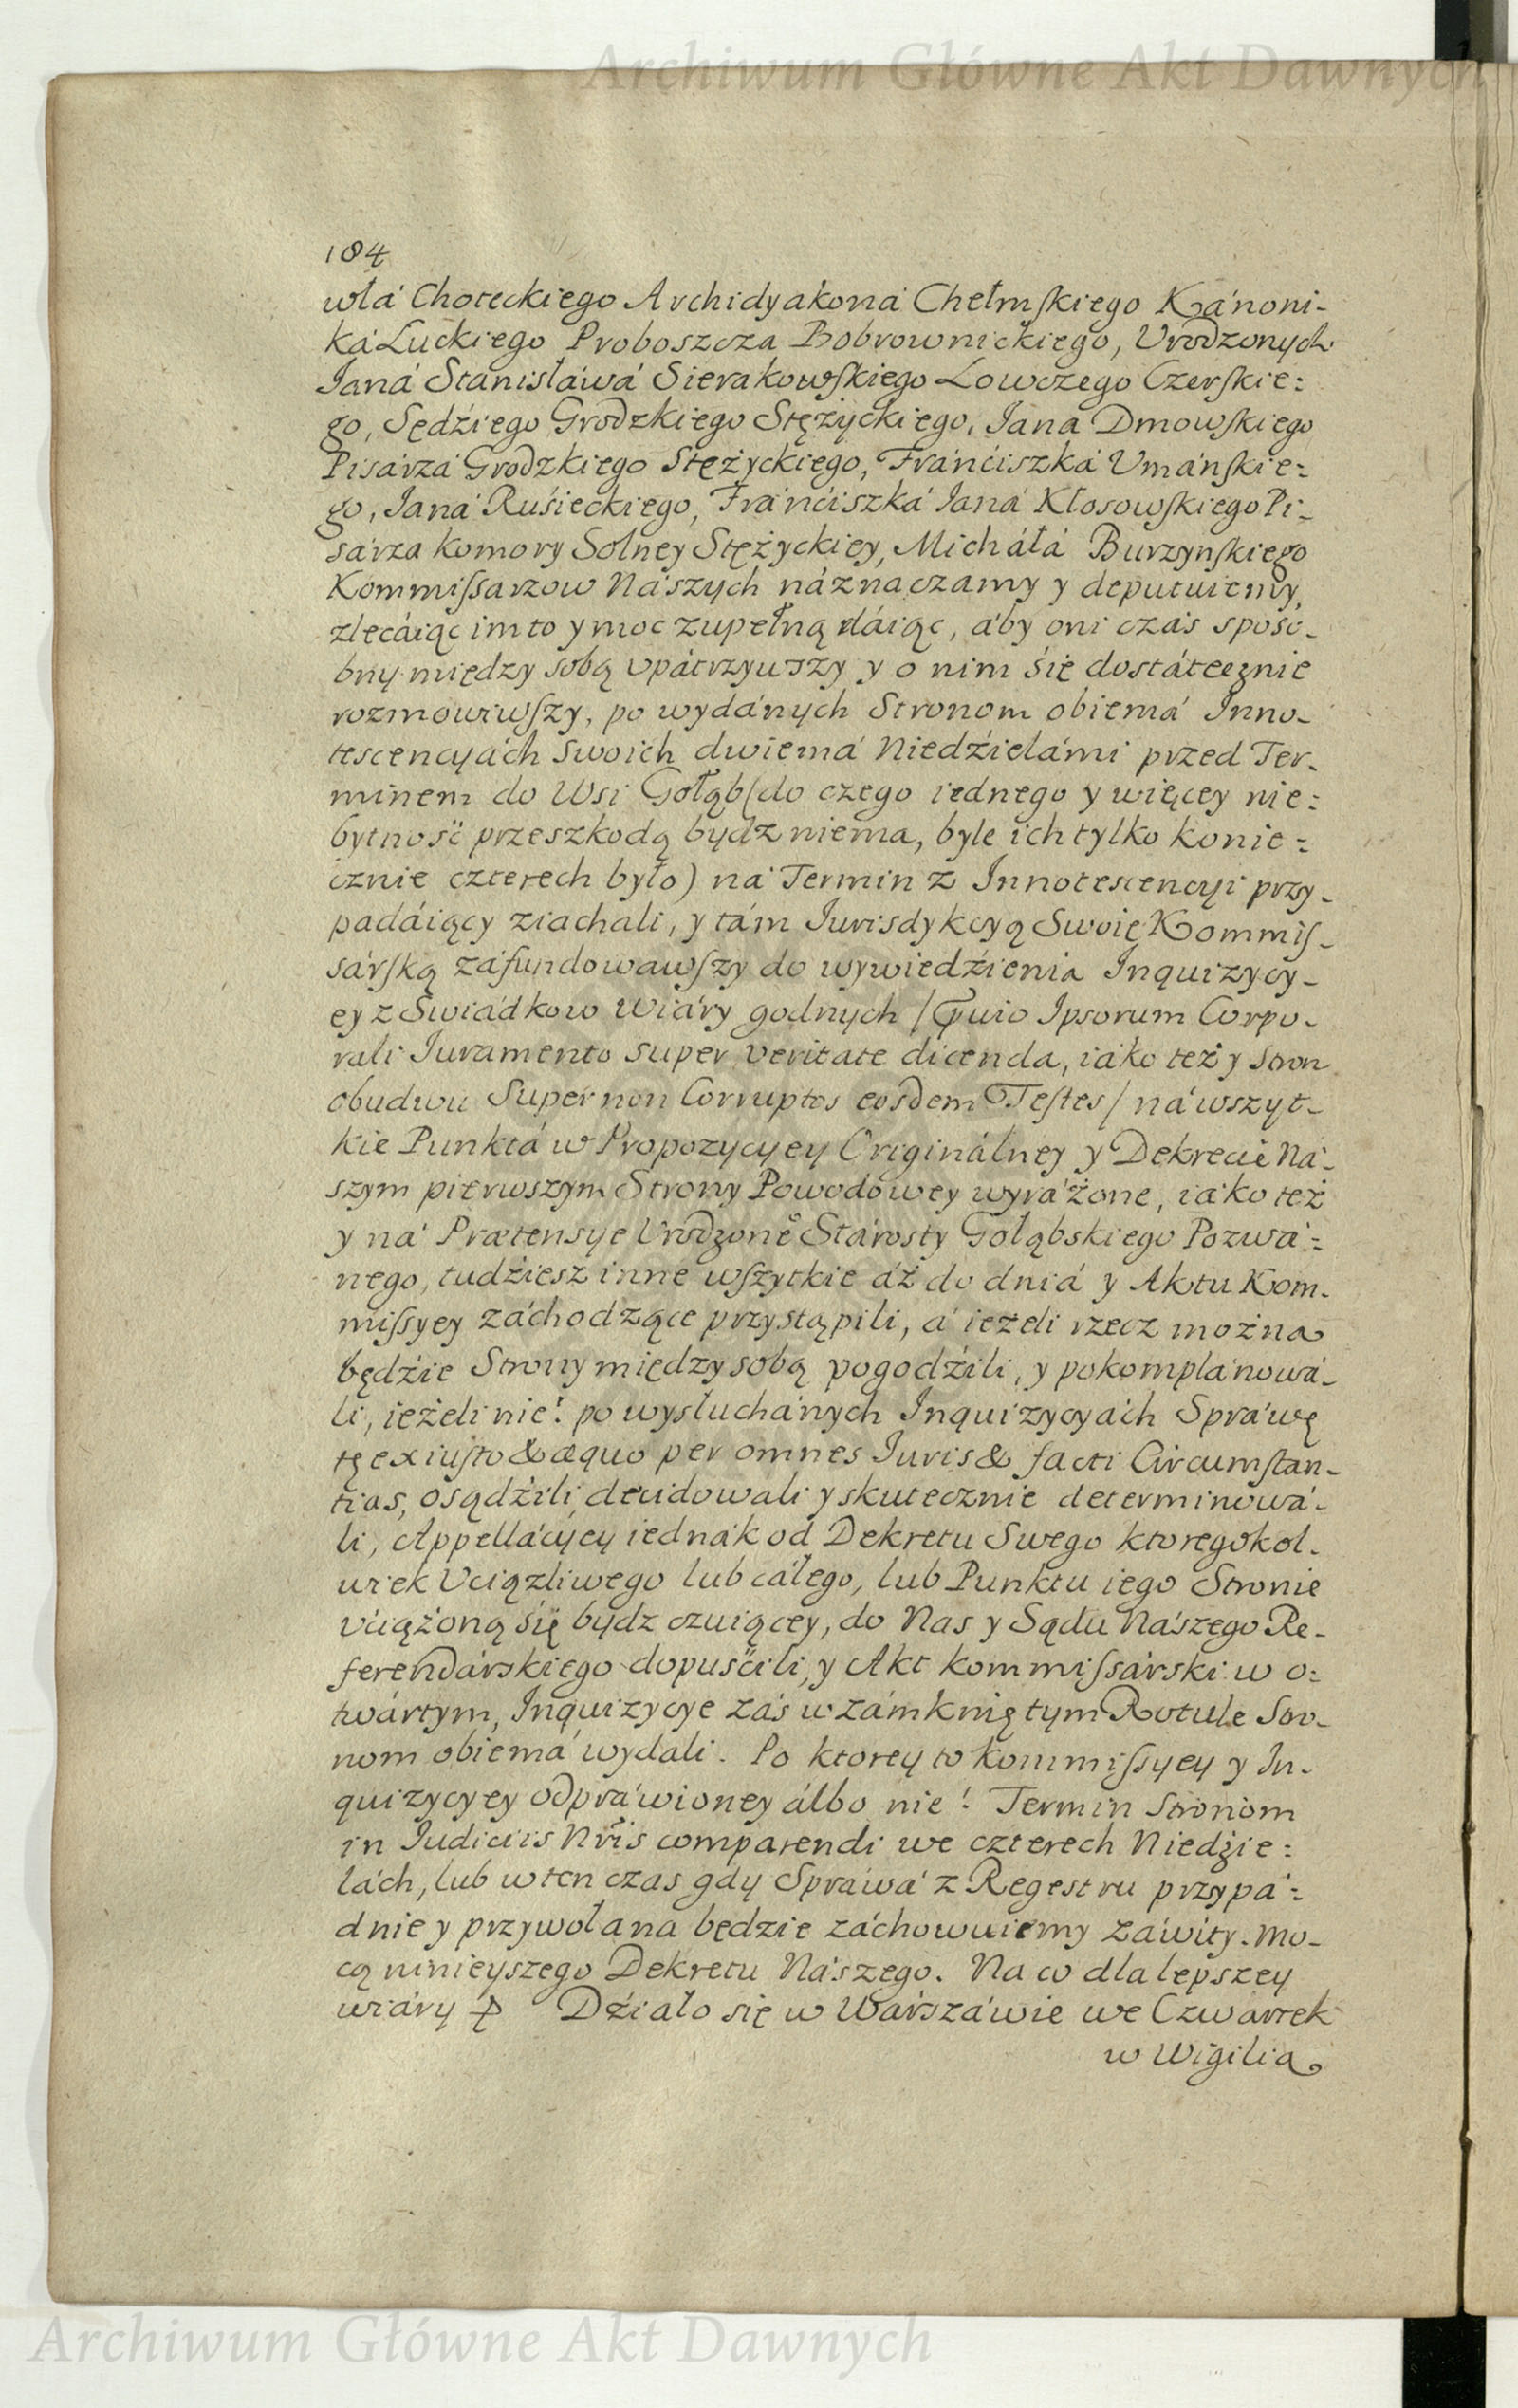 Archiwum Główne Akt Dawnych
184
wła Choteckiego Archidyakoná Chełmſkiego Kánoni-
ká Luckiego Proboszcza Bobrownickiego, Vrodzonych
Janá Stanisłáwá Sierakowſkiego Lowczego Czerſkie:
go, Sędźiego Grodzkiego Stężyckiego, Jana Dmowſkiego
Pisárzá Grodzkiego Stężyckiego, Fránćiszká Vmánſkie:
go, Janá Ruśieckiego, Fránćiszká Janá Kłosowſkiego Pi-
sárza Komory Solney Stężyckiey, Micháłá Burzynſkiego
Kommiſsarzow Nászych náznaczamy y deputuiemy,
zlecáiąc im to y moc zupełną dáiąc, áby oni czás sposo-
bny między sobą vpátrzywszy y o nim śię dostátecznie
rozmowiwſzy, po wydánych Stronom obiemá Inno-
tescencyách swoich dwiemá Niedźielámi przed Ter-
minem do Wsi Gołąb (do czego iednego y więcey nie:
bytność przeszkodą bydz niema, byle ich tylko konie:
cznie czterech było) ná Termin z Innotescencyi przy-
padáiący ziachali, y tám Iurisdykcyą Swoię Kommiſ-
sárſką záfundowawſzy do wywiedźienia Inquizycy-
ey z Swiádkow wiáry godnych / Prævio Ipsorum Corpo-
rali Iuramento super veritate dicenda, iáko też y stron
obudwu Super non Corruptos eosdem Teſtes / ná wszyt-
kie Punktá w Propozycyey Originálney y Dekrecie Ná-
szym pierwszym Strony Powodowey wyráżone, iáko też
y ná Prætensye Vrodzone͠o Stárosty Gołąbskiego Pozwá:
nego, tudźiesz inne wſzytkie áż do dniá y Aktu Kom-
miſsyey záchodzące przystąpili, á ieżeli rzecz można
będźie Strony między sobą pogodźili, y pokomplánowá-
li, ieżeli nie! po wysłuchánych Inquizycyách Spráwę
tę ex iuſto & æquo per omnes Iuris & facti Circumſtan-
tias, osądźili, decidowali y skutecznie determinowá-
li, Appellácyey iednák od Dekretu Swego ktoregokol-
wiek Vciązliwego lub cáłego, lub Punktu iego Stronie
vciążoną śię bydz czuiącey, do Nas y Sądu Nászego Re-
ferendárskiego dopuśćili, y Akt kommiſsárski w o:
twártym, Inquizycye zás w zámkniętym Rotule Stro-
nom obiemá wydali. Po ktorey to kommiſsyey y In-
quizycyey odpráwioney álbo nie! Termin Stronom
in Iudiciis Nr̃is comparendi we czterech Niedźie:
lách, lub w ten czas gdy Spráwá z Regestru przypá:
dnie y przywołana będzie záchowuiemy záwity. Mo-
cą ninieyszego Dekretu Nászego. Na co dla lepszey
wiáry ꝑ Dźiało się w Wárszáwie we Czwartek
w Wigilia
Archiwum Główne Akt Dawnych